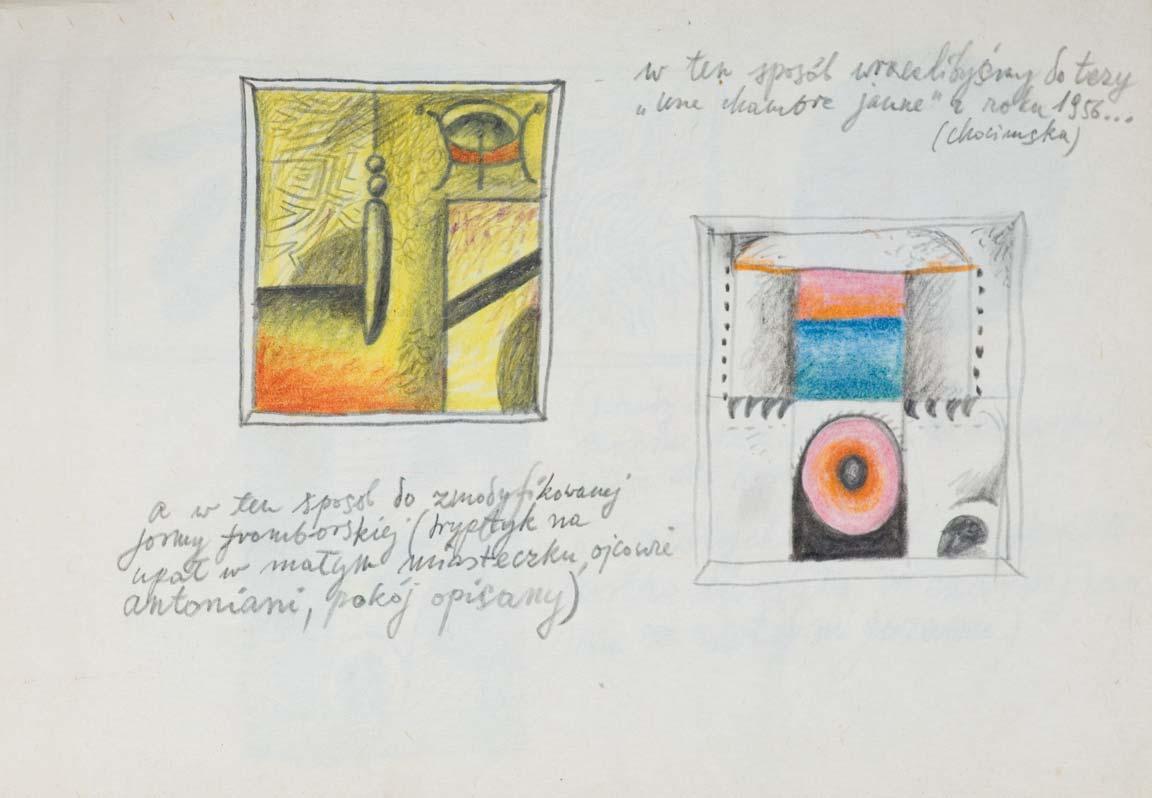 w ten sposób wrócilibyśmy do tezy
„une chambre jaune” z roku 1956...
(chocimska)
a w ten sposób do zmodyfikowanej
formy fromborskiej (tryptyk na
upał w małym miasteczku, ojcowie
antoniani, pokój opisany)